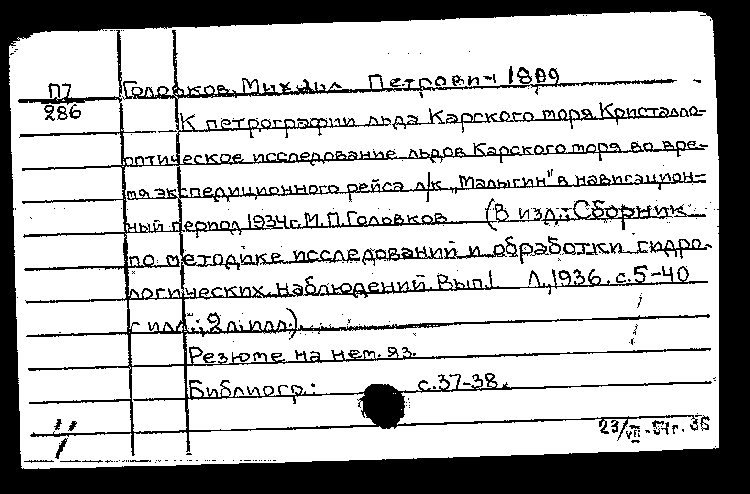 П7
286
Головков, Михаил Петрович 1899
К петрографии льда Карского моря. Кристалло-
оптическое исследование льдов Карского моря во вре-
мя экспедиционного рейса л/к „Малыгин" в навигацион-
ный период 1934г. М.П. Головков (В изд.: Сборник
по методике исследований и обработки гидро-
логических наблюдений. Вып.1 Л., 1936. с. 5-40
с илл.; 2 л. илл.).
Резюме на нем. яз.
Библиогр.: с. 37-38.
23/VII-54г. 36